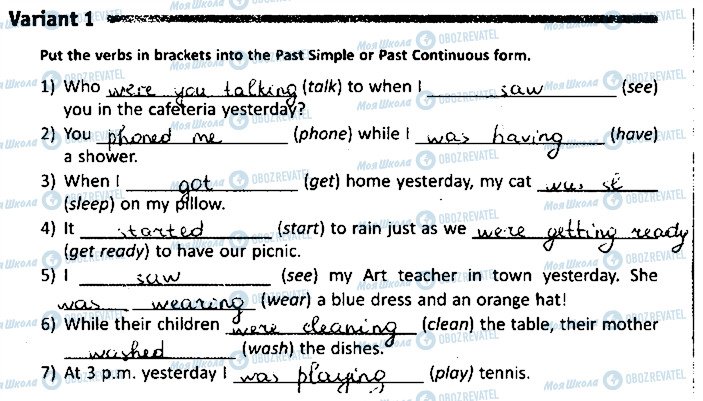 Variant 1
Put the verbs in brackets into the Past Simple or Past Continuous form.
1) Who were you talking (talk) to when I saw (see)
you in the cafeteria yesterday?
2) You phoned me (phone) while I was having (have)
a shower.
3) When I got (get) home yesterday, my cat was
(sleep) on my pillow.
4) It started (start) to rain just as we were getting ready
(get ready) to have our picnic.
5) I saw (see) my Art teacher in town yesterday. She
was wearing (wear) a blue dress and an orange hat!
6) While their children were cleaning (clean) the table, their mother
washed (wash) the dishes.
7) At 3 p.m. yesterday I was playing (play) tennis.